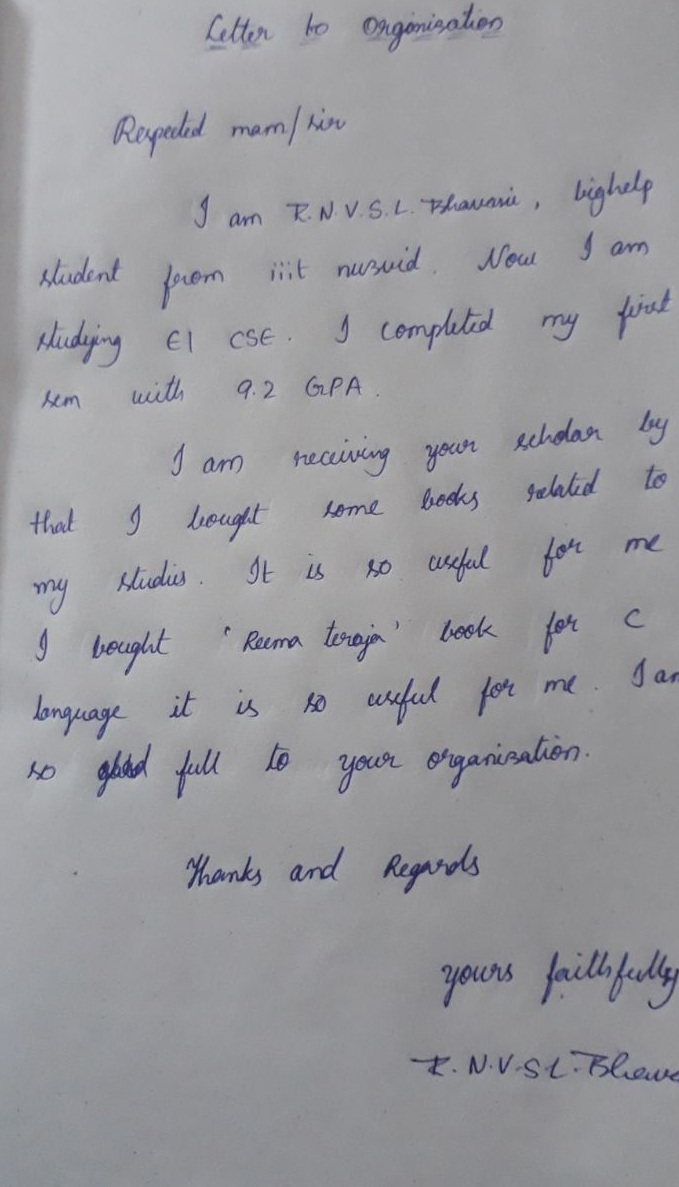 Letter to Organization
Respected mam/sir
I am R.N.V.S.L.Bhavani, bighelp
student from iiit nuzvid. Now I am
studying E1 CSE. I completed my first
sem with 9.2 GPA.
I am receiving your scholar by
that I bought some books related to
my studies. It is so useful for me
I bought 'Reema teraja' book for C
language it is so useful for me. I am
so glad full to your organization.
Thanks and Regards
yours faithfully
R.N.V.S.L.Bhava